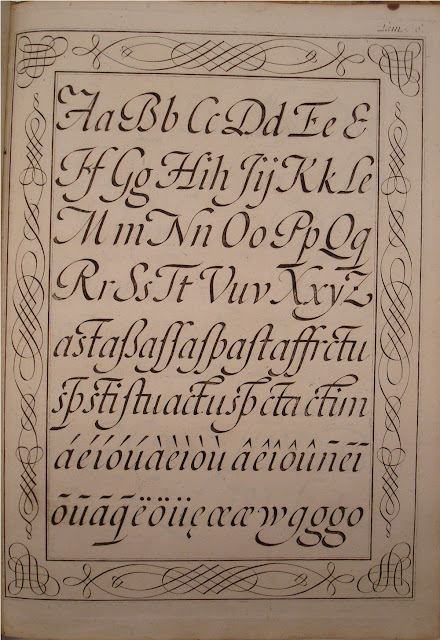 Lam. 6.
Aa Bb Cc Dd Ee E
Ff Gg Hih Jij Kk Le
M m Nn Oo Pp Qq
Rr Ss Tt Vuv XxyZ
asťaßaſſaſpaſtaffrctu
spstiſtuactuspctactim
áéíóúàèìòù âêîôûñẽĩ
õũãq̃ëöüęœæwgggo